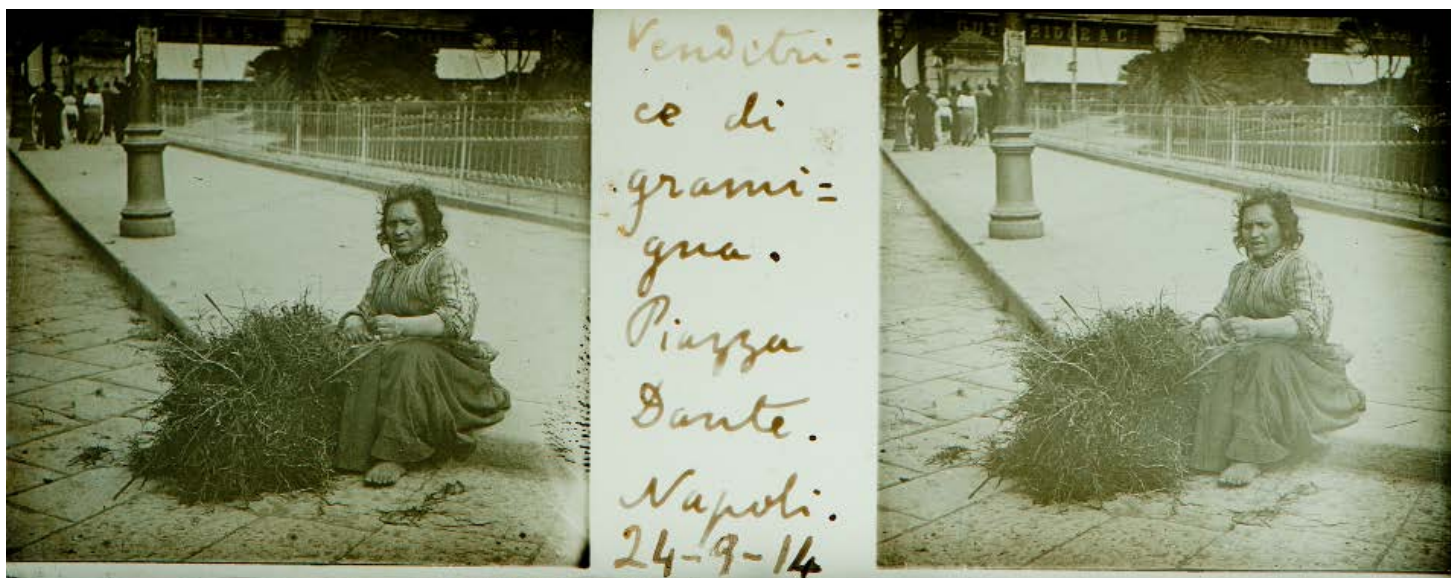 Venditri=
ce di
grami=
gna.
Piazza
Dante.
Napoli.
24-9-14